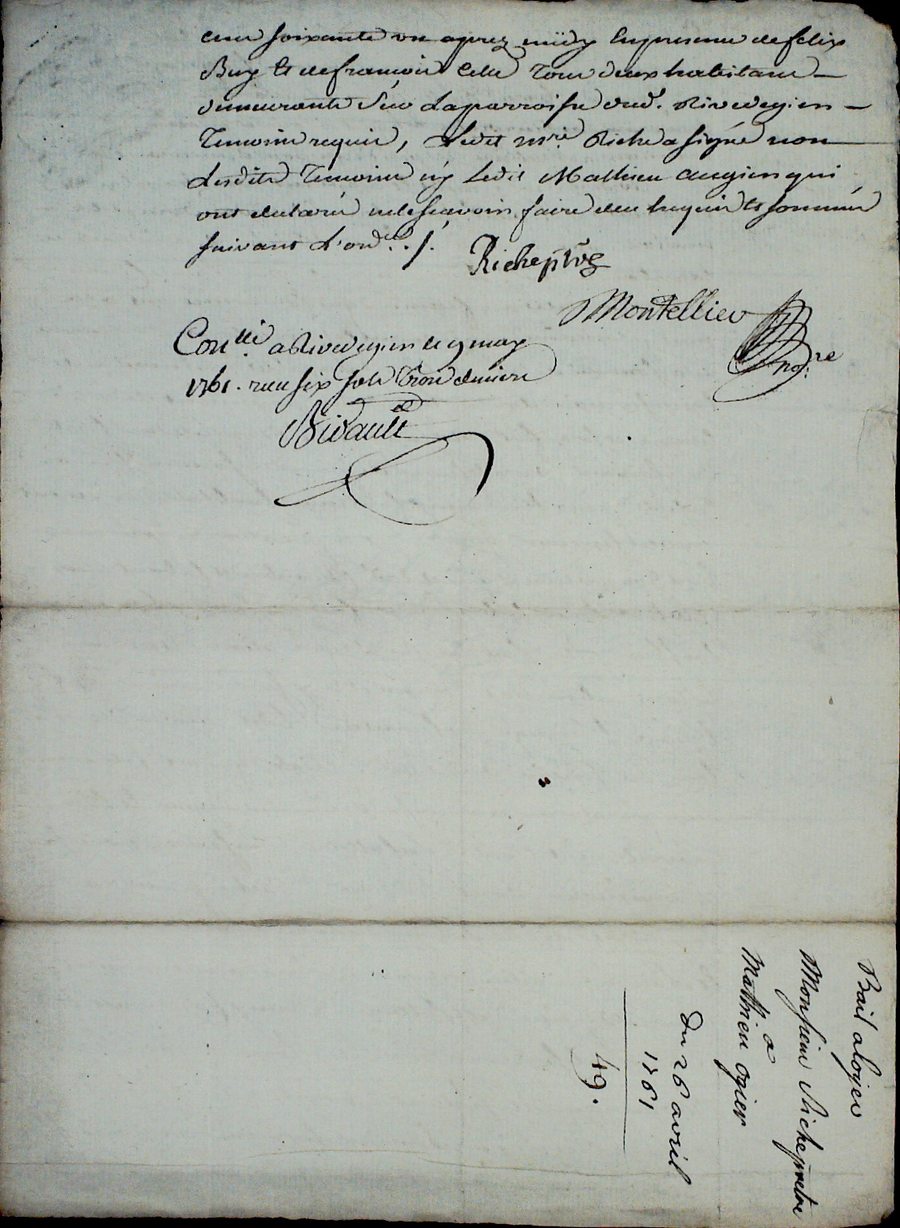 cens soixante un aprez midy en presence de felix
Buy et de francois Celle tous deux habitans
demeurants en la parroisse dud. Rivedegier
Temoins requis, Ledit m.re Riche a signé non
Lesdits Temoins ny Ledit Mathieu augier qui
ont declaré ne le scavoir faire de ce Enquis et sommés
suivant L'ord.ce ./.
Riche ptre
Montellier no.re
Con.llé a Rivedegier le 9 may
1761. reçu six sols trois deniers
Bivault
Bail a loyer
Monsieur Riche pretre
a
Mathieu ogier
du 26 avril
1761
49.